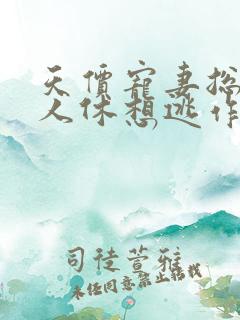 天價寵妻总
人休想逃作
司徒萱雅
未经同意禁止转载